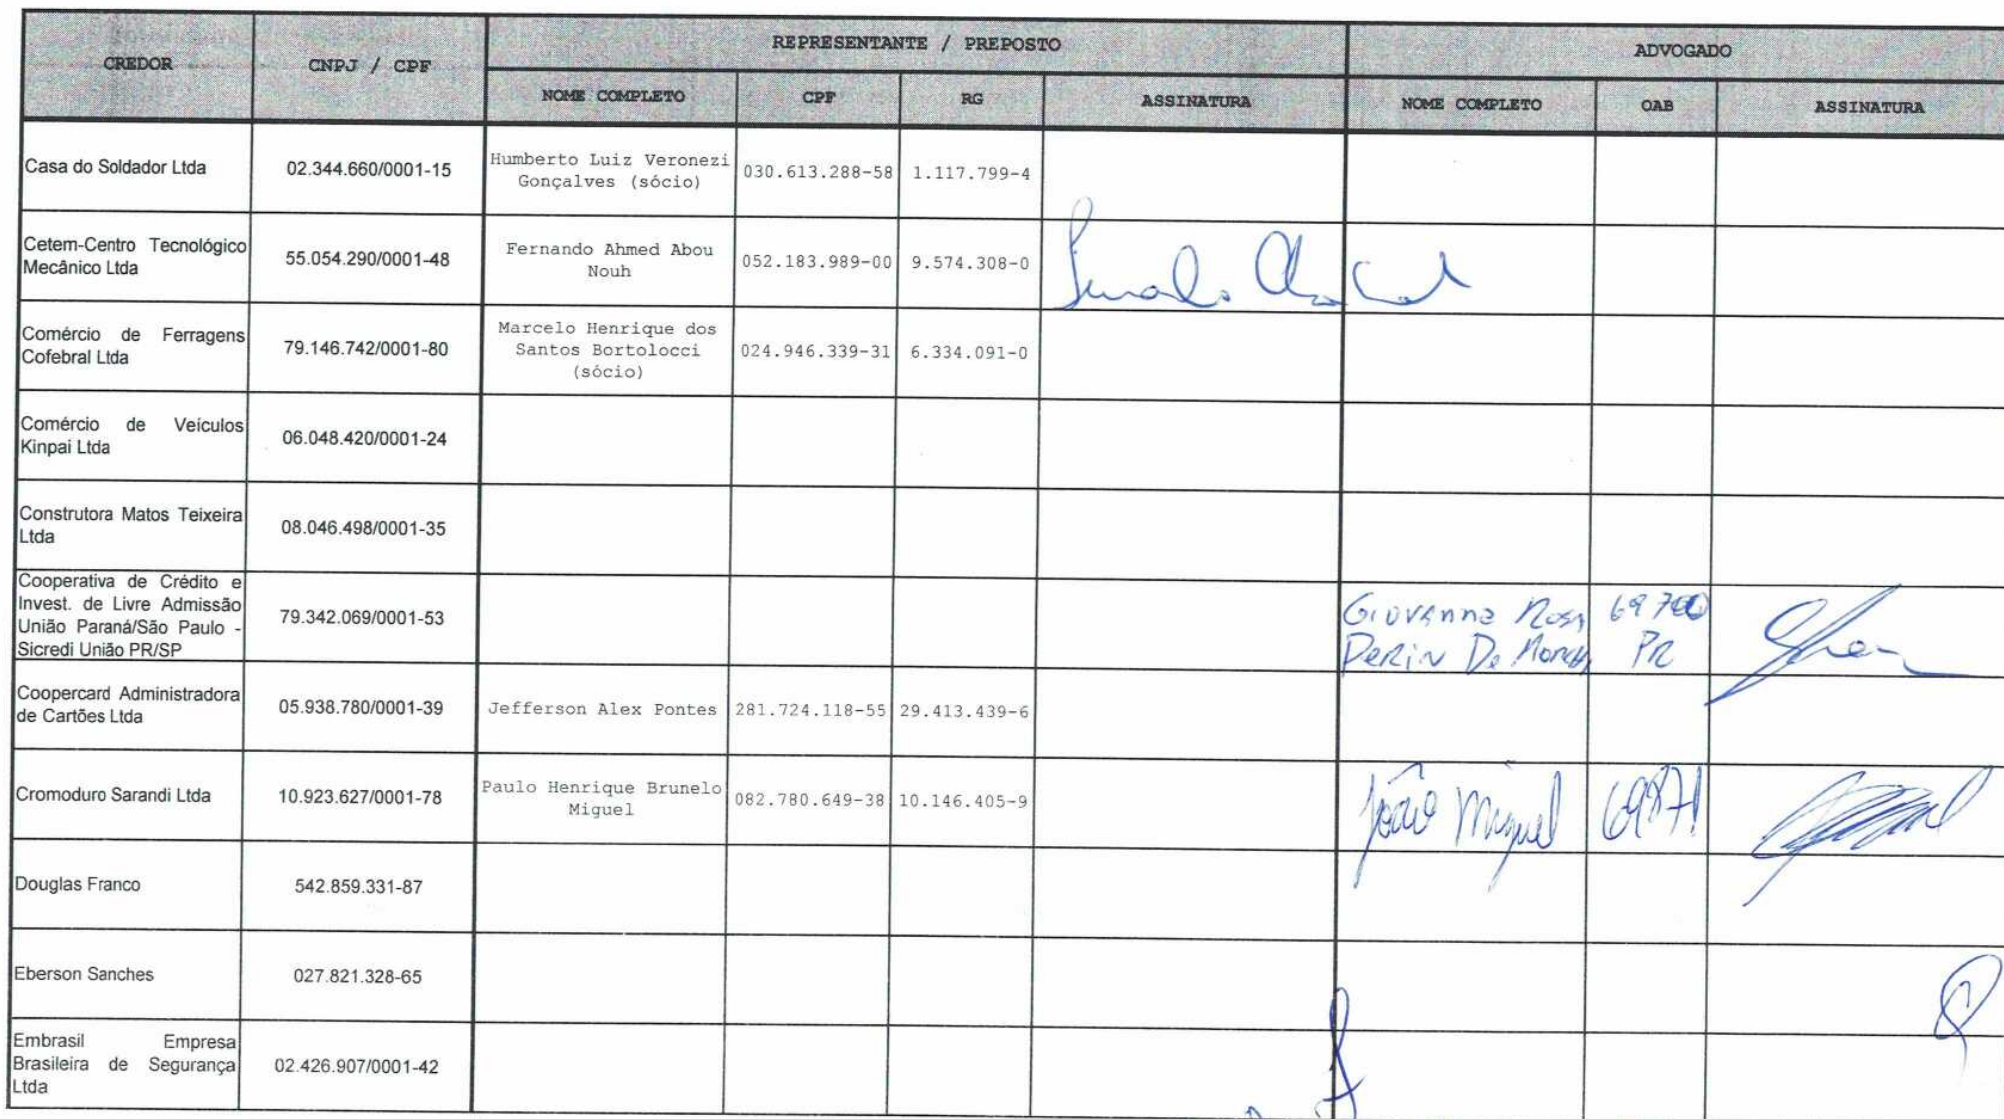 CREDOR
CNPJ / CPF
REPRESENTANTE / PREPOSTO
ADVOGADO
NOME COMPLETO
CPF
RG
ASSINATURA
NOME COMPLETO
OAB
ASSINATURA
Casa do Soldador Ltda
02.344.660/0001-15
Humberto Luiz Veronezi
Gonçalves (sócio)
030.613.288-58
1.117.799-4
Cetem-Centro Tecnológico
Mecânico Ltda
55.054.290/0001-48
Fernando Ahmed Abou
Nouh
052.183.989-00
9.574.308-0
Comércio de Ferragens
Cofebral Ltda
79.146.742/0001-80
Marcelo Henrique dos
Santos Bortolocci
(sócio)
024.946.339-31
6.334.091-0
Comércio de Veículos
Kinpai Ltda
06.048.420/0001-24
Construtora Matos Teixeira
Ltda
08.046.498/0001-35
Cooperativa de Crédito e
Invest. de Livre Admissão
União Paraná/São Paulo -
Sicredi União PR/SP
79.342.069/0001-53
Giovanna Rosa
Perin De
PR
Coopercard Administradora
de Cartões Ltda
05.938.780/0001-39
Jefferson Alex Pontes
281.724.118-55
29.413.439-6
Cromoduro Sarandi Ltda
10.923.627/0001-78
Paulo Henrique Brunelo
Miguel
082.780.649-38
10.146.405-9
João Miguel
69871
Douglas Franco
542.859.331-87
Eberson Sanches
027.821.328-65
Embrasil Empresa
Brasileira de Segurança
Ltda
02.426.907/0001-42